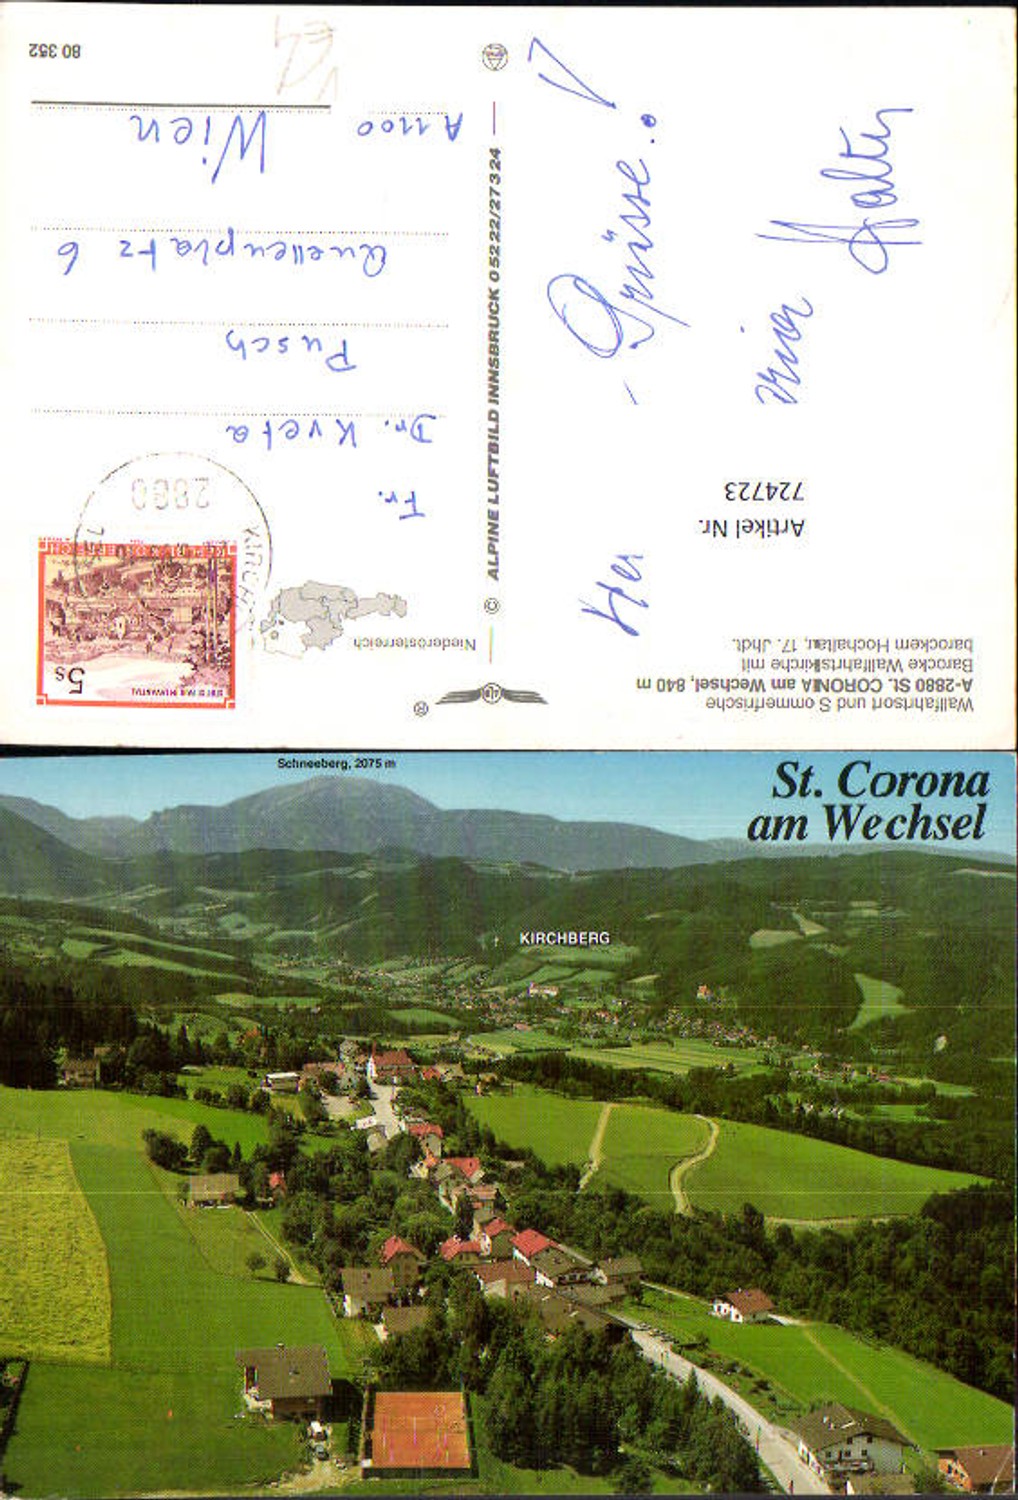 Wallfahrtsort und Sommerfrische
A-2880 ST. CORONA am Wechsel, 840 m
Barocke Wallfahrtskirche mit
barockem Hochaltar, 17. Jhdt.
Artikel Nr.
724723
Grüsse!
®
© ALPINE LUFTBILD INNSBRUCK 05222/27324
Niederösterreich
5 S
2880
KIRCH
Fr.
Dr. Kveta
Pusch
Quellenplatz 6
A 1100 Wien
80 352
Schneeberg, 2075 m
St. Corona
am Wechsel
KIRCHBERG